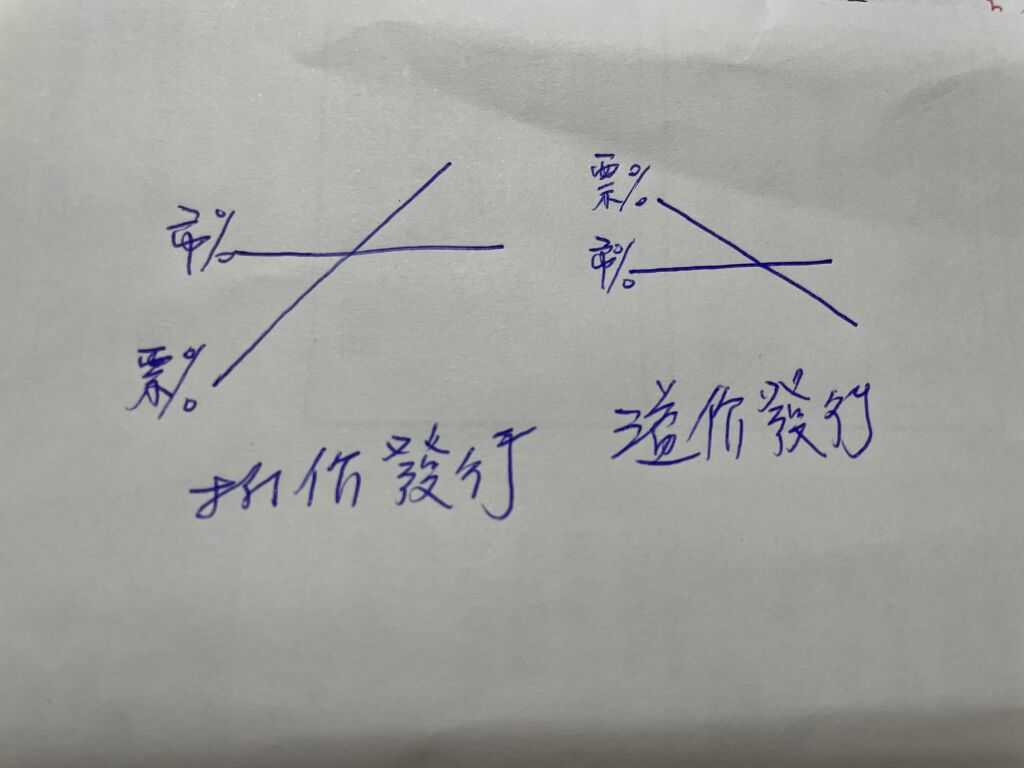 市%
票%
折价發行
票%
市%
溢价發行